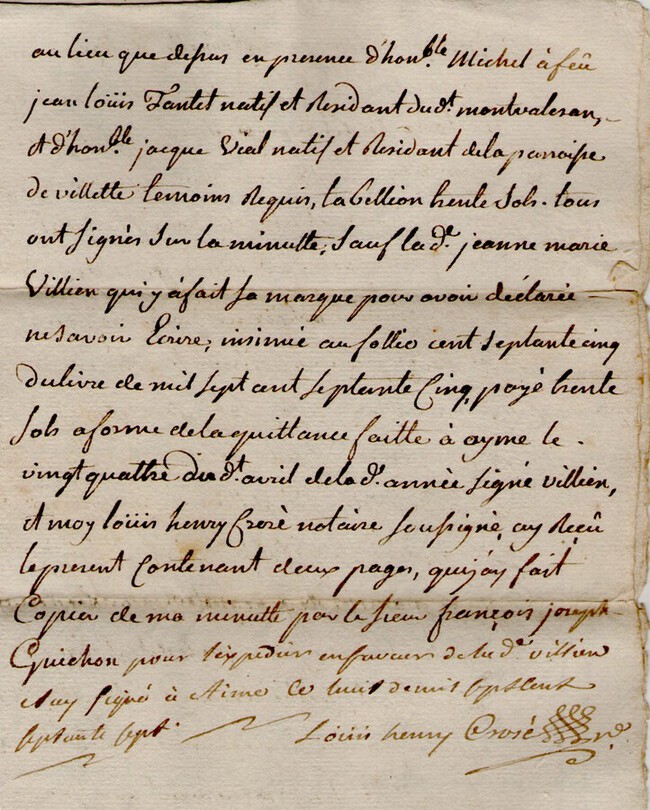 au lieu que desus en presence d'hon.ble Michel à feü
jean loüis Tantet natif et Residant dud.t montvalesan,
et d'hon.ble jacque Vial natif et Residant de la parroisse
de villette temoins Requis, tabellion trente sols. tous
ont signés sur la minutte, sauf lad.e jeanne marie
Villien qui y à fait sa marque pour avoir déclarée
ne savoir Ecrire, insinué au follio cent septante cinq
du livre de mil sept cent septante Cinq, payé trente
sols a forme de la quittance faitte à ayme le
vingt quattre dud.t avril de lad.e année signé villien,
et moy loüis henry Crosé notaire soussigné, ay Reçû
le present Contenant deux pages, quij'ay fait
Copier de ma minutte par le sieur françois joseph
Guichon pour l'expedier en faveur de lad.e villien
et ay signé à Aime ce huit de mil sept cent
septante sept.
Loüis henry Crosé n.re